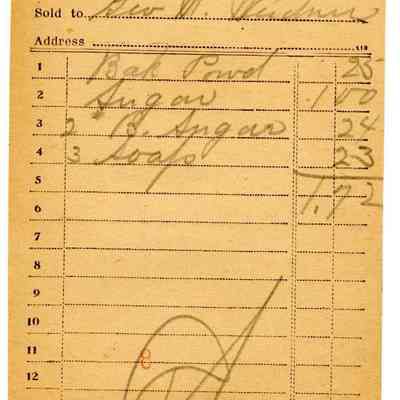 Sold to Geo W.
Address
1 Bak Powd 25
2 Sugar 1 00
3 2 B. Sugar 24
4 3 soaps 23
5 1.72
6
7
8
9
10
11 8
12